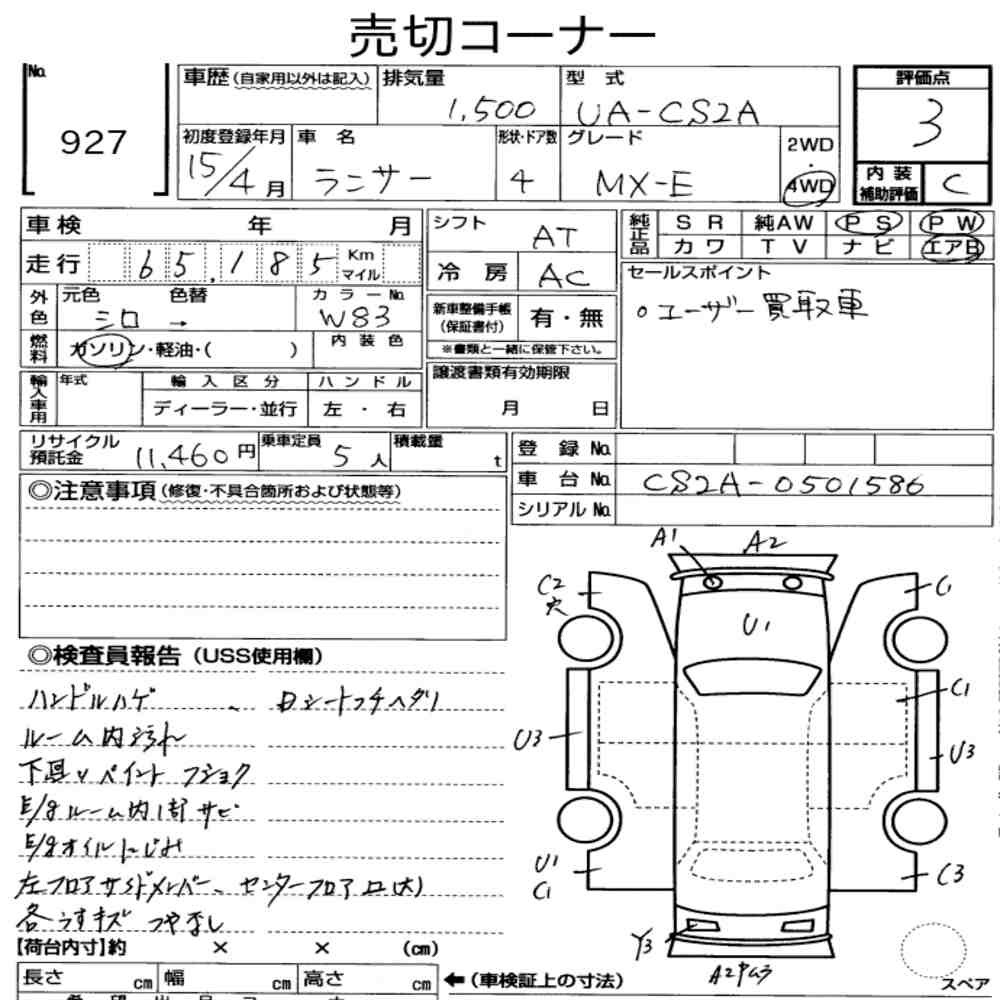 売切コーナー
No. 927
車歴(自家用以外は記入) 排気量 1,500 型式 UA-CS2A 評価点 3
初度登録年月 15/4月 車名 ランサー 形状・ドア数 4 グレード MX-E 2WD・4WD 内装補助評価 C
車検 年 月
走行 65,185 Km マイル
外色 元色 シロ → 色替 カラーNo. W83
燃料 ガソリン・軽油・( ) 内装色
輸入車用 年式 輸入区分 ディーラー・並行 ハンドル 左・右
シフト AT
冷房 AC
新車整備手帳(保証書付) 有・無
※書類と一緒に保管下さい。
譲渡書類有効期限
月 日
純正品 SR 純AW PS PW
カワ TV ナビ エアB
セールスポイント
○ユーザー買取車
リサイクル預託金 11,460円 乗車定員 5人 積載量 t
登録No.
車台No. CS2A-0501586
シリアルNo.
◎注意事項(修復・不具合箇所および状態等)
◎検査員報告(USS使用欄)
ハンドルハゲ
ルーム内汚れ
下廻りペイント フショク
E/gルーム内1部サビ
E/gオイルにじみ
左フロアサイドメンバー、センターフロア凹(大)
各うすキズ つやなし
A1 A2
C2 穴 C1
U1
C1
U3 U3
U1 C1 C3
Y3
【荷台内寸】約 × × (cm)
長さ cm 幅 cm 高さ cm ←(車検証上の寸法) スペア